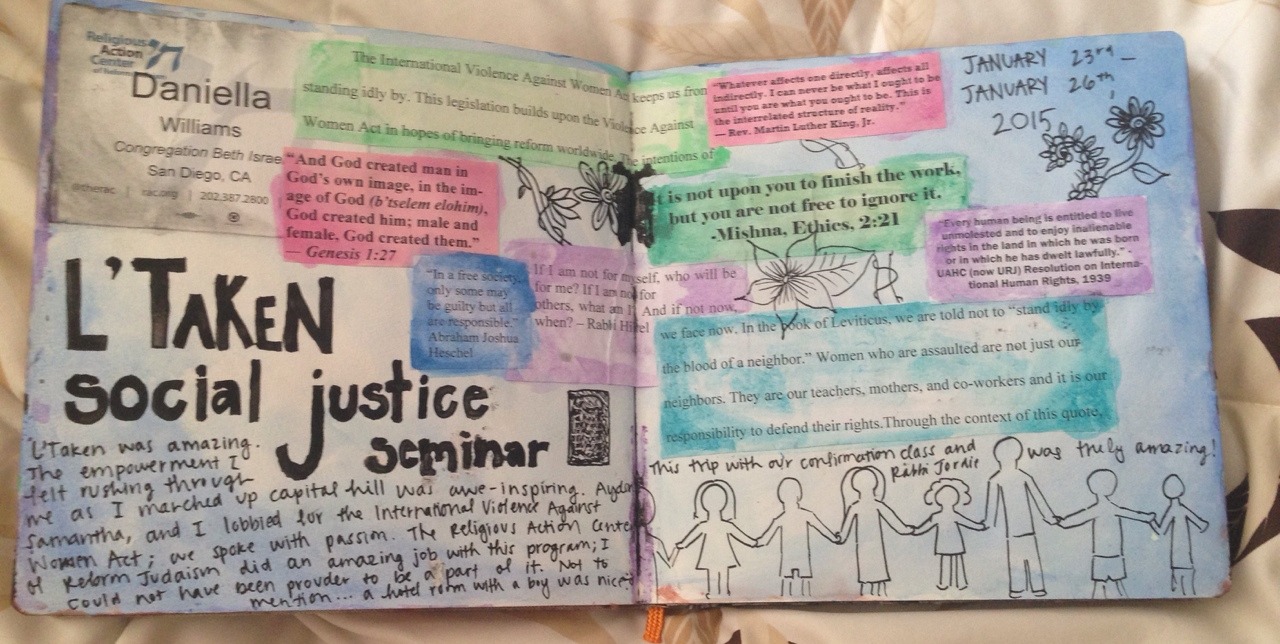 Religious
Action
Center
Daniella
Williams
Congregation Beth Israe
San Diego, CA
@therac | rac.org | 202.387.2800
The International Violence Against Women Ac keeps us from
standing idly by. This legislation builds upon the Violence Against
Women Act in hopes of bringing reform worldwide. The intentions of
"And God created man in
God's own image, in the im-
age of God (b'tselem elohim),
God created him; male and
female, God created them."
— Genesis 1:27
"In a free society,
only some may
be guilty but all
are responsible."
Abraham Joshua
Heschel
If I am not for myself, who will be
for me? If I am not for
others, what am I? And if not now,
when? – Rabbi Hillel
L'TAKEN
social justice
seminar
L'Taken was amazing.
The empowerment I
felt rushing through
me as I marched up capital hill was awe-inspiring. Aydin
Samantha, and I lobbied for the International Violence Against
Women Act; we spoke with passion. The Religious Action Cente
of Reform Judaism did an amazing job with this program; I
could not have been provder to be a part of it. Not to
mention... a hotel room with a boy was nice
"Whatever affects one directly, affects all
indirectly. I can never be what I ought to be
until you are what you ought to be. This is
the interrelated structure of reality."
— Rev. Martin Luther King, Jr.
JANUARY 23rd –
JANUARY 26th,
2015
It is not upon you to finish the work,
but you are not free to ignore it.
-Mishna, Ethics, 2:21
"Every human being is entitled to live
unmolested and to enjoy inalienable
rights in the land in which he was born
or in which he has dwelt lawfully." -
UAHC (now URJ) Resolution on Interna-
tional Human Rights, 1939
we face now. In the book of Leviticus, we are told not to "stand idly by
the blood of a neighbor." Women who are assaulted are not just our
neighbors. They are our teachers, mothers, and co-workers and it is our
responsibility to defend their rights.Through the context of this quote,
This trip with our confirmation class and
Rabbi Jordie was truly amazing!